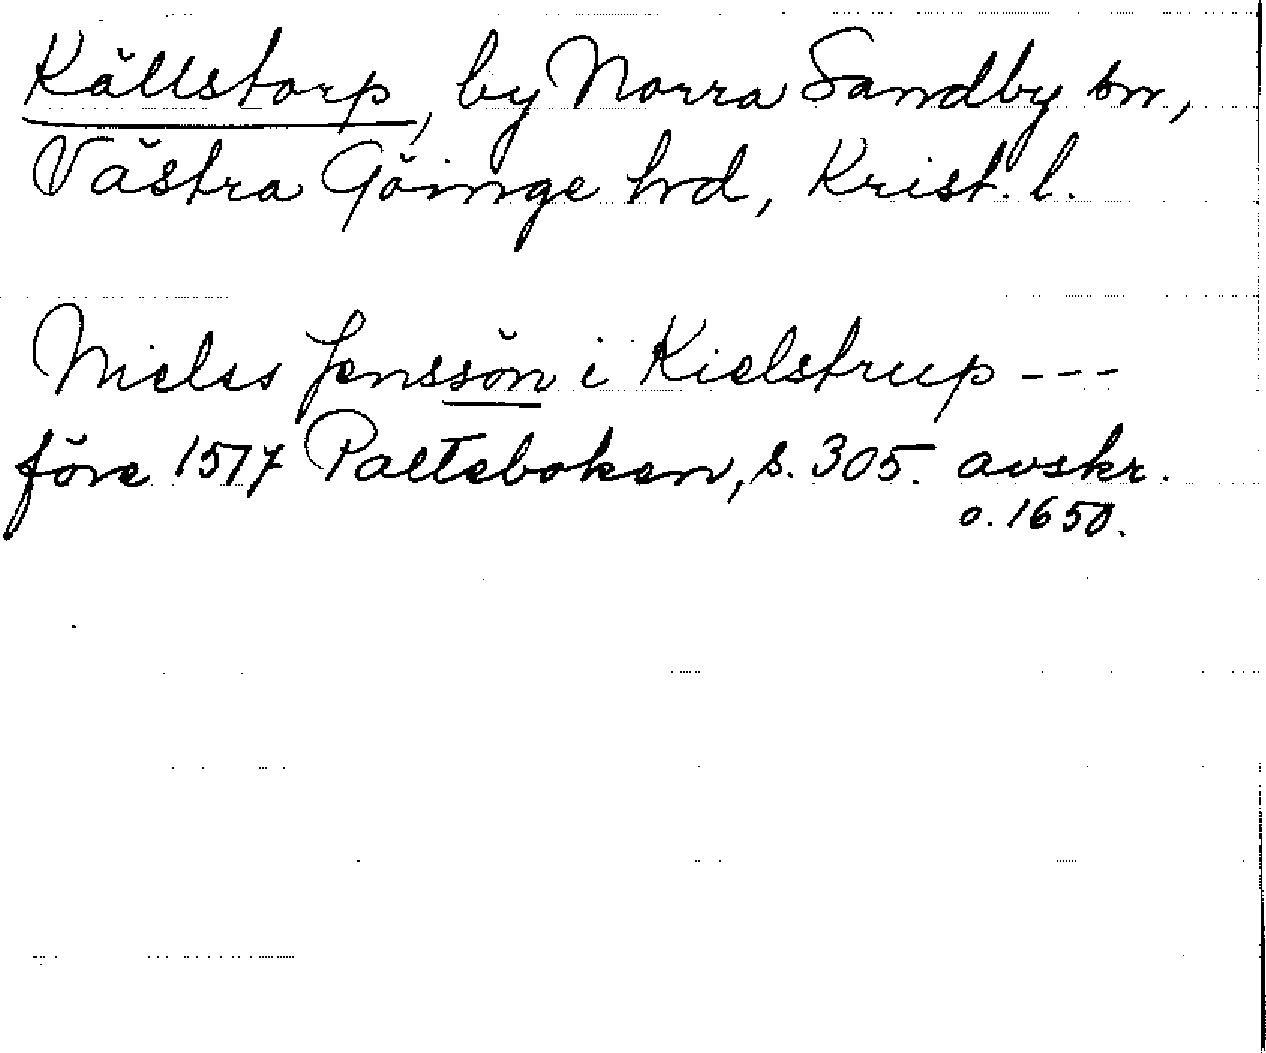 Källstorp, by Norra Sandby sn,
Västra Göinge hd, Krist. l.
Nieles Jenssön i Kielstrup ---
före 1517 Palteboken, s. 305. avskr.
o. 1650.